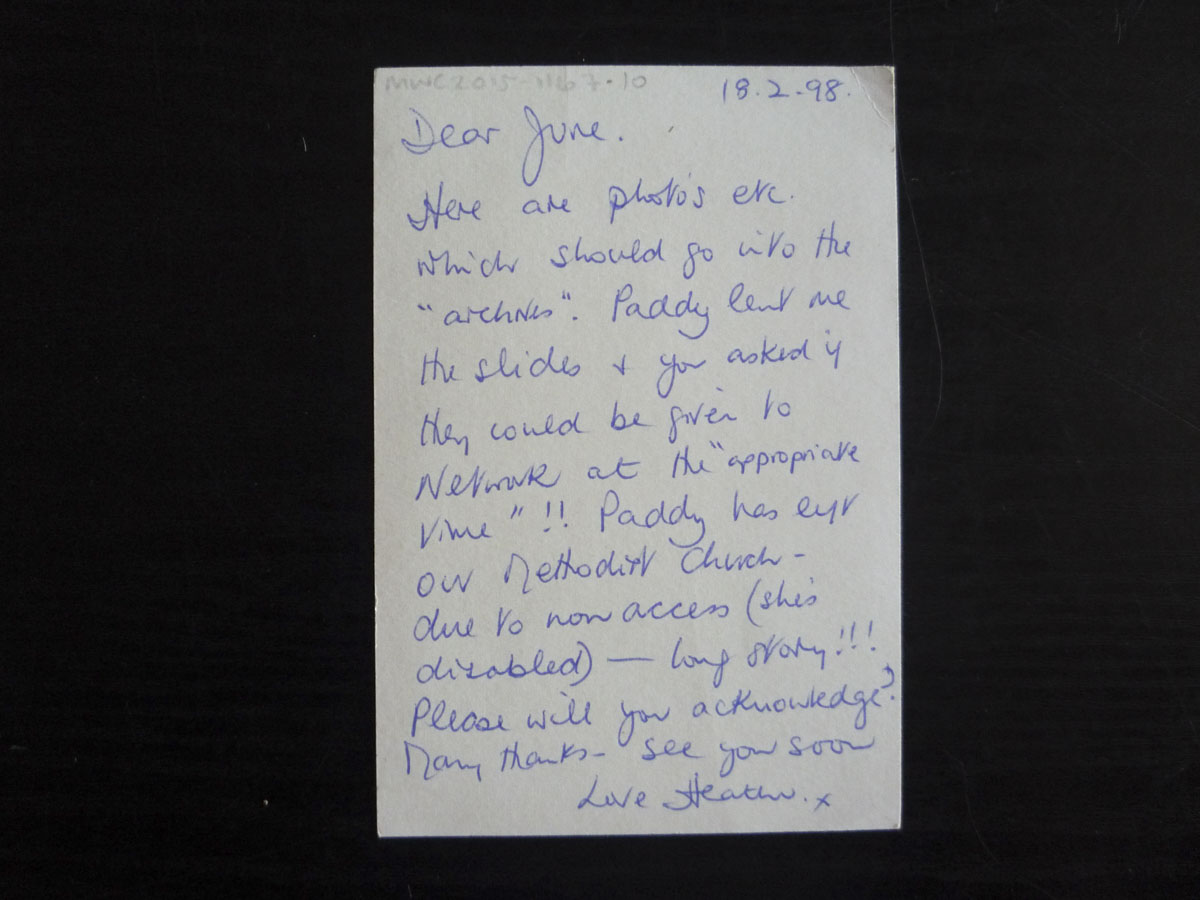 MWC2015-1167.10
18.2.98.
Dear June.
Here are photo's etc.
which should go into the
"archives". Paddy lent me
the slides + you asked if
they could be given to
Network at the "appropriate
time" !! Paddy has left
our Methodist Church -
due to non access (she's
disabled) — long story!!!
Please will you acknowledge?
Many thanks - see you soon
Love Heather. x